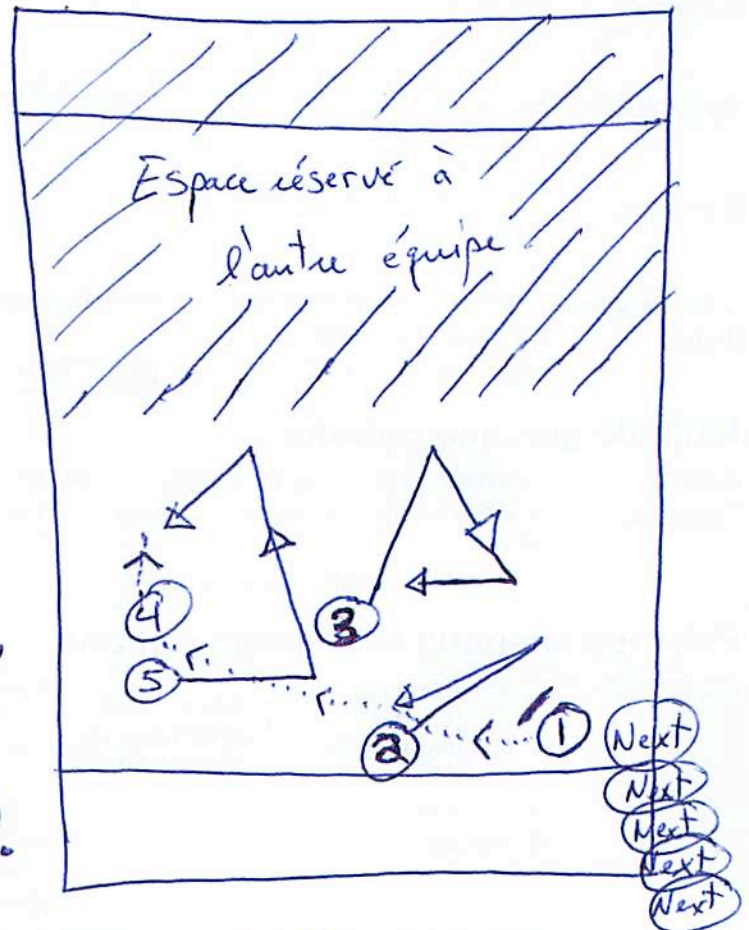 Espace réservé à
l'autre équipe
4
3
5
1
2
Next
Next
Next
Next
Next